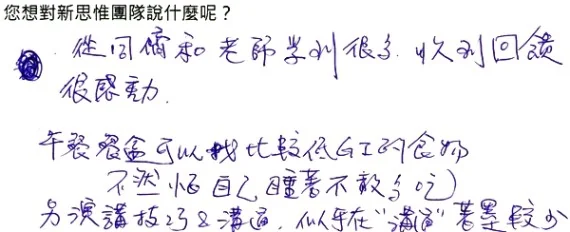 您想對新思惟團隊說什麼呢？
從同儕和老師學到很多. 收到回饋
很感動.
午餐餐盒可以找比較低GI的食物
不然怕自己睡著不敢多吃)
另演講技巧&溝通, 似乎在"溝通"著墨較少